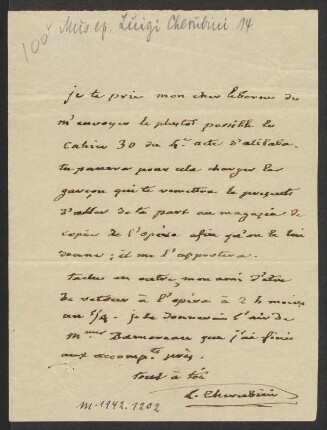 100 Mus. ep. Luigi Cherubini 14
je te prie mon cher leborne de
m'envoyer le plustot possible le
Cahier 30 du 4e acte d'alibaba.
tu pourras pour cela charger le
garçon qui te remettra la presente
d'aller de ta part au magazin de
copie de l'opéra afin qu'on le lui
donne; il me l'apportera.
tache en outre, mon ami d'etre
de retour à l'opéra à 2 h moins
un 1/4. je te donnerai l'air de
Mme Damoreau que j'ai finie
aux accompts près.
tout à toi
L. Cherubini
m. 1942.1202